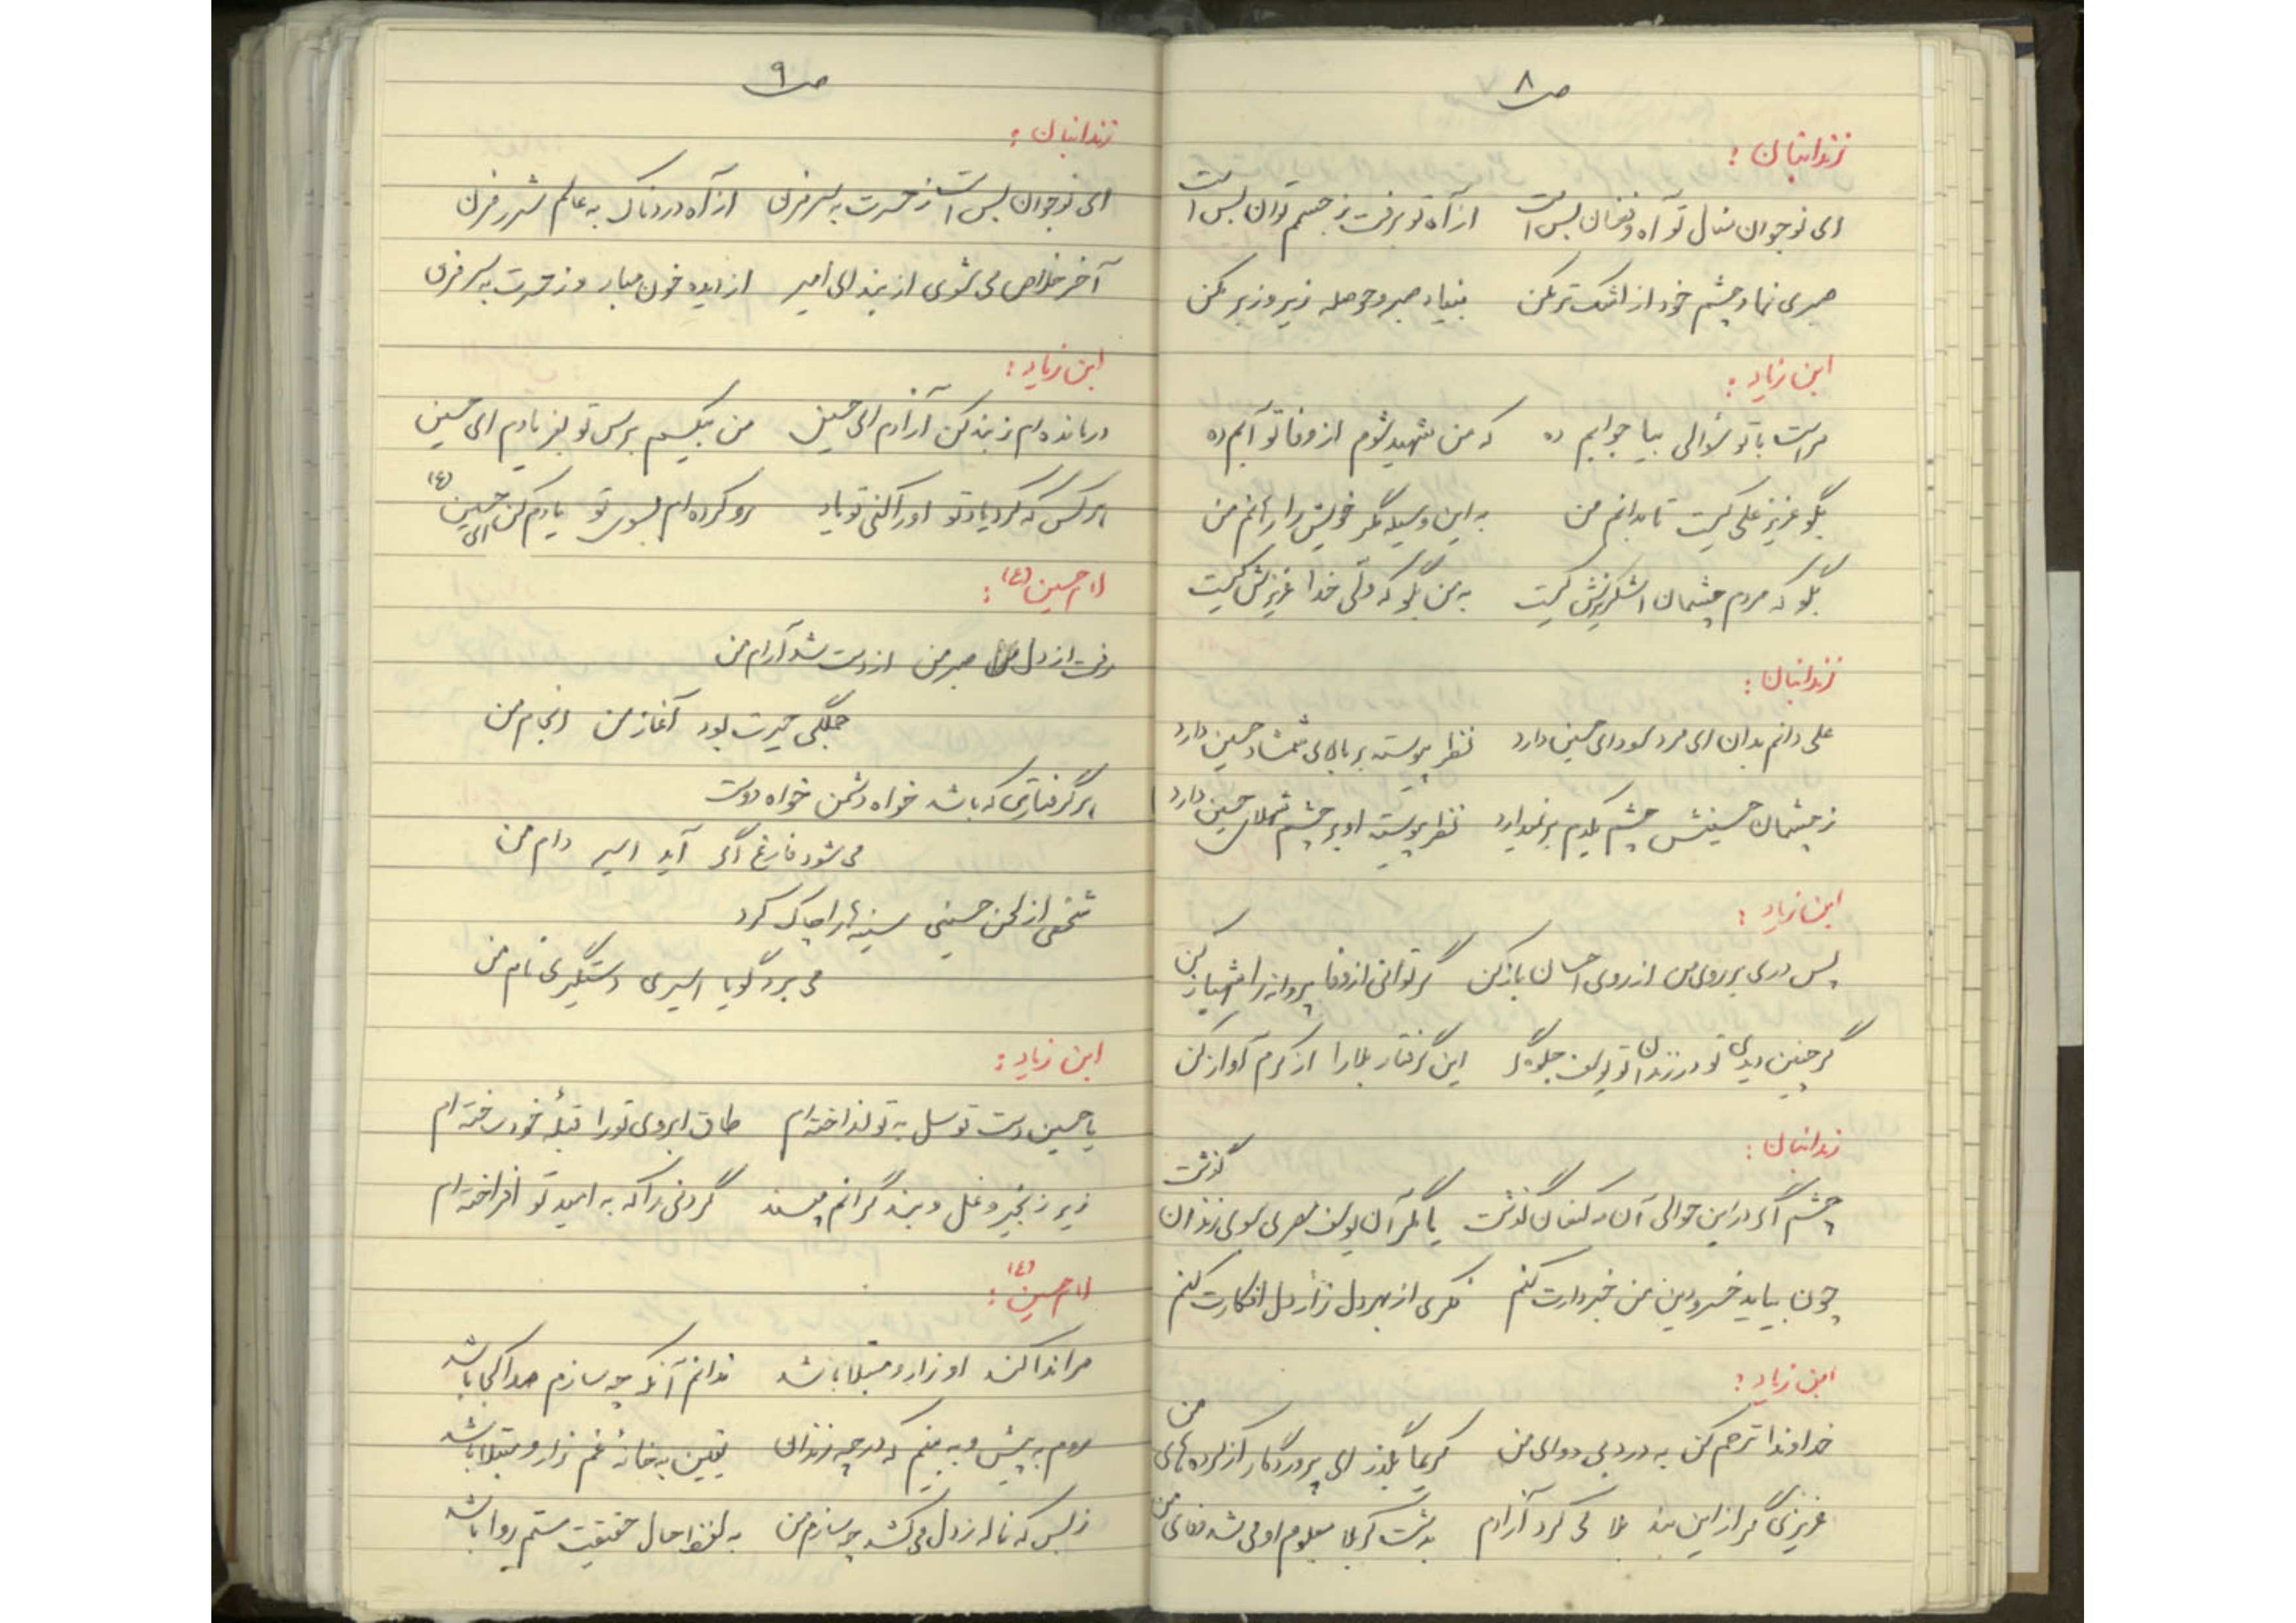 ص ۸
زندانبان :
ای نوجوان منال تو آه و فغان بس است از آه تو برفت ز جسم توان بس است
صبری نما و چشم خود از اشک تر مکن بنیاد صبر و حوصله زیر و زبر مکن
ابن زیاد :
مراست با تو سؤالی بیا جوابم ده که من شهید شوم از وفا تو آبم ده
بگو عزیز علی کیست تا بدانم من به این وسیله مگر خویش را رهانم من
بگو که مردم چشمان اشکریزش کیست به من بگو که ولی خدا عزیزش کیست
زندانبان :
علی دانم بدان ای مرد سودای حسین دارد نظر پیوسته بر بالای شمشاد حسین دارد
ز چشمان حسینش چشم یکدم بر نمیدارد نظر پیوسته او بر چشم شهلای حسین دارد
ابن زیاد :
پس دری بر روی من از روی احسان باز کن گر توانی از وفا پروانه را شهباز کن
گر چنین دیدی تو در زندان تو یوسف جلوه گر این گرفتار بلا را از کرم آواز کن
زندانبان :
چشم اگر در این حوالی آن مه کنعان گذشت یا مگر آن یوسف مصری سوی زندان گذشت
چون بیاید خسرو دین من خبردارت کنم فکری از بهر دل زار دل افکارت کنم
ابن زیاد :
خداوندا ترحم کن به درد بی دوای من کریما بگذر ای پروردگار از کرده های من
عزیزی گر از این بند بلا می کرد آزادم بدشت کربلا معلوم او می شد وفای من
ص ۹
زندانبان :
ای نوجوان بس است ز حسرت به سر مزن از آه دردناک به عالم شرر مزن
آخر خلاص می شوی از بند ای امیر از دیده خون مبار و ز حسرت به سر مزن
ابن زیاد :
درمانده ام ز بند کن آزادم ای حسین من بیکسم برس تو بفریادم ای حسین
هر کس که کرد یاد تو او را کنی تو یاد رو کرده ام بسوی تو یادم کن ای حسین (ع)
امام حسین (ع) :
رفت از دل صبر من از دست شد آرام من
جملگی حیرت بود آغاز من انجام من
هر گرفتاری که باشد خواه دشمن خواه دوست
می شود فارغ اگر آید اسیر دام من
شخصی از لحن حسینی سینه ها را چاک کرد
می برد گویا اسیری دستگیری نام من
ابن زیاد :
یا حسین دست توسل به تو انداخته ام طاق ابروی تو را قبلهٔ خود ساخته ام
زیر زنجیر و غل و بند گرانم مپسند گردنی را که به امید تو افراخته ام
امام حسین (ع) :
مرا ندا کند او زار و مبتلا باشد ندانم آنکه چه سازم صدا کجا باشد
روم به پیش و به بینم که در چه زندان یقین به خانهٔ غم زار و مبتلا باشد
ز بس که ناله ز دل می کشد چه سازم من به لفظ حال حقیقت ستم روا باشد